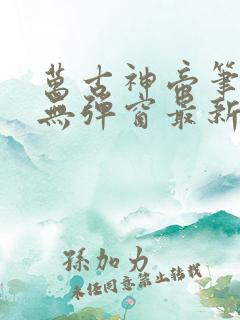 萬古神帝筆
無彈窗最新
孫加力
未經同意禁止轉載